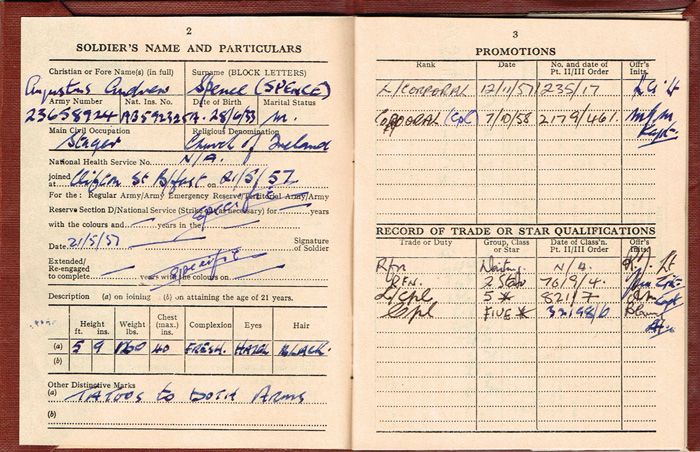 2
SOLDIER'S NAME AND PARTICULARS
Christian or Fore Name(s) (in full) Surname (BLOCK LETTERS)
Augustus Andrew Spence (SPENCE)
Army Number Nat. Ins. No. Date of Birth Marital Status
23658924 28/6/33 M.
Main Civil Occupation Religious Denomination
Stager Church of Ireland
National Health Service No. N/A.
joined at Clifton St Belfast on 21/5/57
For the : Regular Army/Army Emergency Reserve/Territorial Army/Army
Reserve Section D/National Service (Strike out as necessary) for years
with the colours and years in the
Date 21/5/57 Signature of Soldier
Extended/
Re-engaged
to complete years with the colours on
Description (a) on joining (b) on attaining the age of 21 years.
Height Weight Chest Complexion Eyes Hair
ft. ins. lbs. (max.) ins.
(a) 5 9 160 40 FRESH. HAZEL BLACK.
(b)
Other Distinctive Marks
(a) TATOOS to BOTH ARMS
(b)
3
PROMOTIONS
Rank Date No. and date of Pt. II/III Order Offr's Inits.
L/CORPORAL 12/11/57 235/17
CORPORAL (Cpl) 7/10/58 2179/461. Capt.
RECORD OF TRADE OR STAR QUALIFICATIONS
Trade or Duty Group, Class or Star Date of Class'n. Pt. II/III Order Offr's Inits
Rfn N/A. Lt
RFN. 2 Star 76/9/4. Capt
L/Cpl 5 * 821/7 Capt
Cpl FIVE *